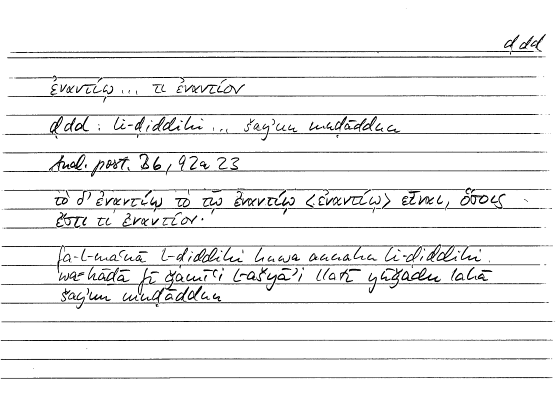 ḍdd
ἐναντίῳ... τι ἐναντίον
ḍdd : li-ḍiddihi... šayʾun muḍāddun
Anal. post. B6, 92a 23
τὸ δ' ἐναντίῳ τὸ τῷ ἐναντίῳ <ἐναντίῳ> εἶναι, ὅσοις
ἔστι τι ἐναντίον.
fa-l-maʿnā l-ḍiddihi huwa annahu li-ḍiddihi.
wa-hāḏā fī ǧamīʿi l-ašyāʾi llatī yūǧadu lahā
šayʾun muḍāddun